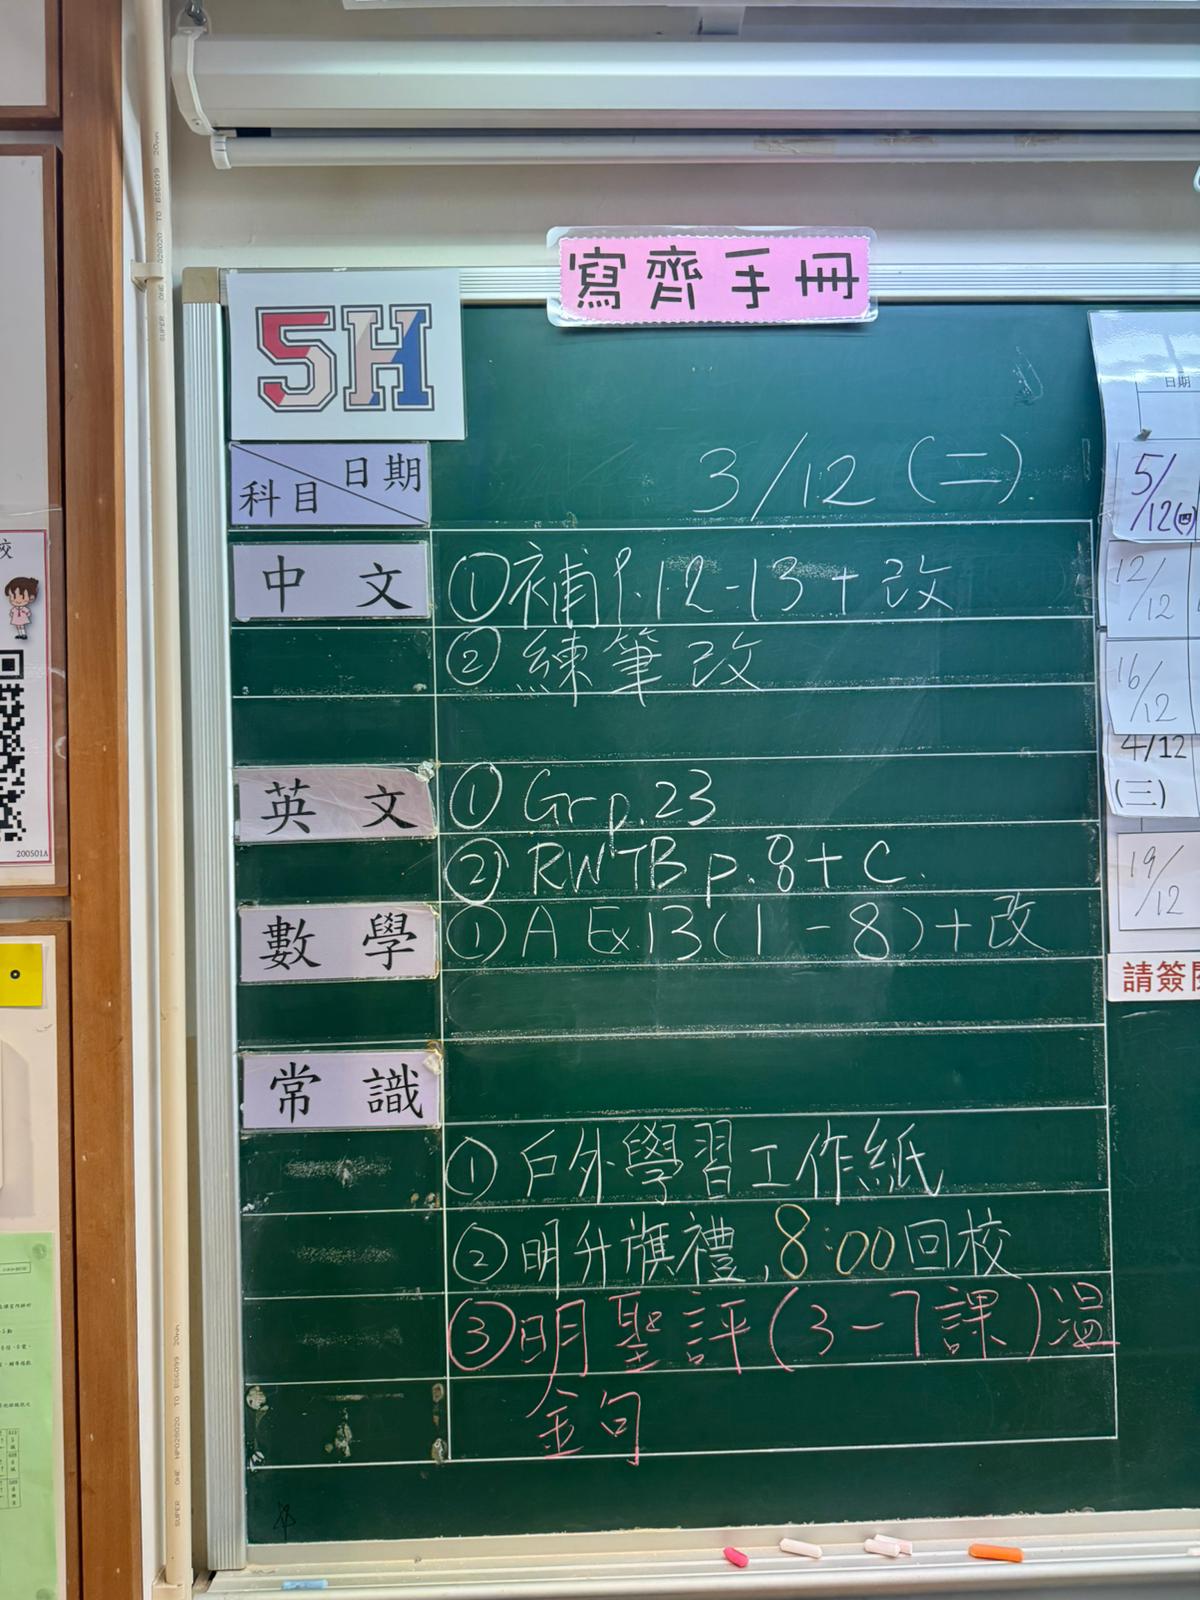 寫齊手冊
5H
日期
科目
3/12 (二).
中文
①補P.12-13+改
②練筆改
英文
① Gr p.23
② RWTB p.8+C.
數學
① A Ex.13(1-8)+改
常識
① 戶外學習工作紙
② 明升旗禮,8:00回校
③明聖評(3-7課)溫
金句
日期
5/12(四)
12/12
16/12
4/12
(三)
19/12
請簽
校
200501A
SUPER ONE HP028020 TO BS6099 20mm